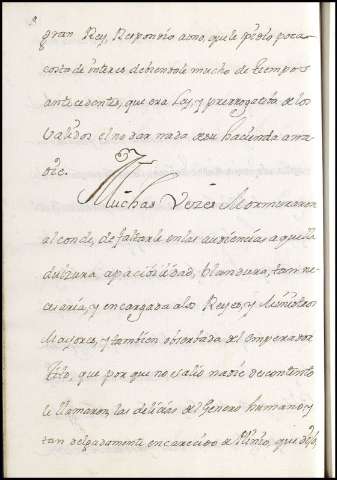 gran Rey, Respondio como, que le pidio poca
costa de interes debiendole mucho de tiempos
antecedentes, que era Ley, y prerrogatiba de los
Validos el no dar nada de su hacienda a na
die.
Muchas Vezes Mormuraron
al conde, de faltarle en las audiencias aquella
dulzura, apacibilidad, blandura, tan ne
cesaria, y encargada a los Reyes, y Ministros
Mayores, y tambien obserbada del emperador
Tito, que por que no salio nadie descontento
le llamaron, las delicias del Genero humano, y
tan delgadamente encarecido de Plinio, que dijo,